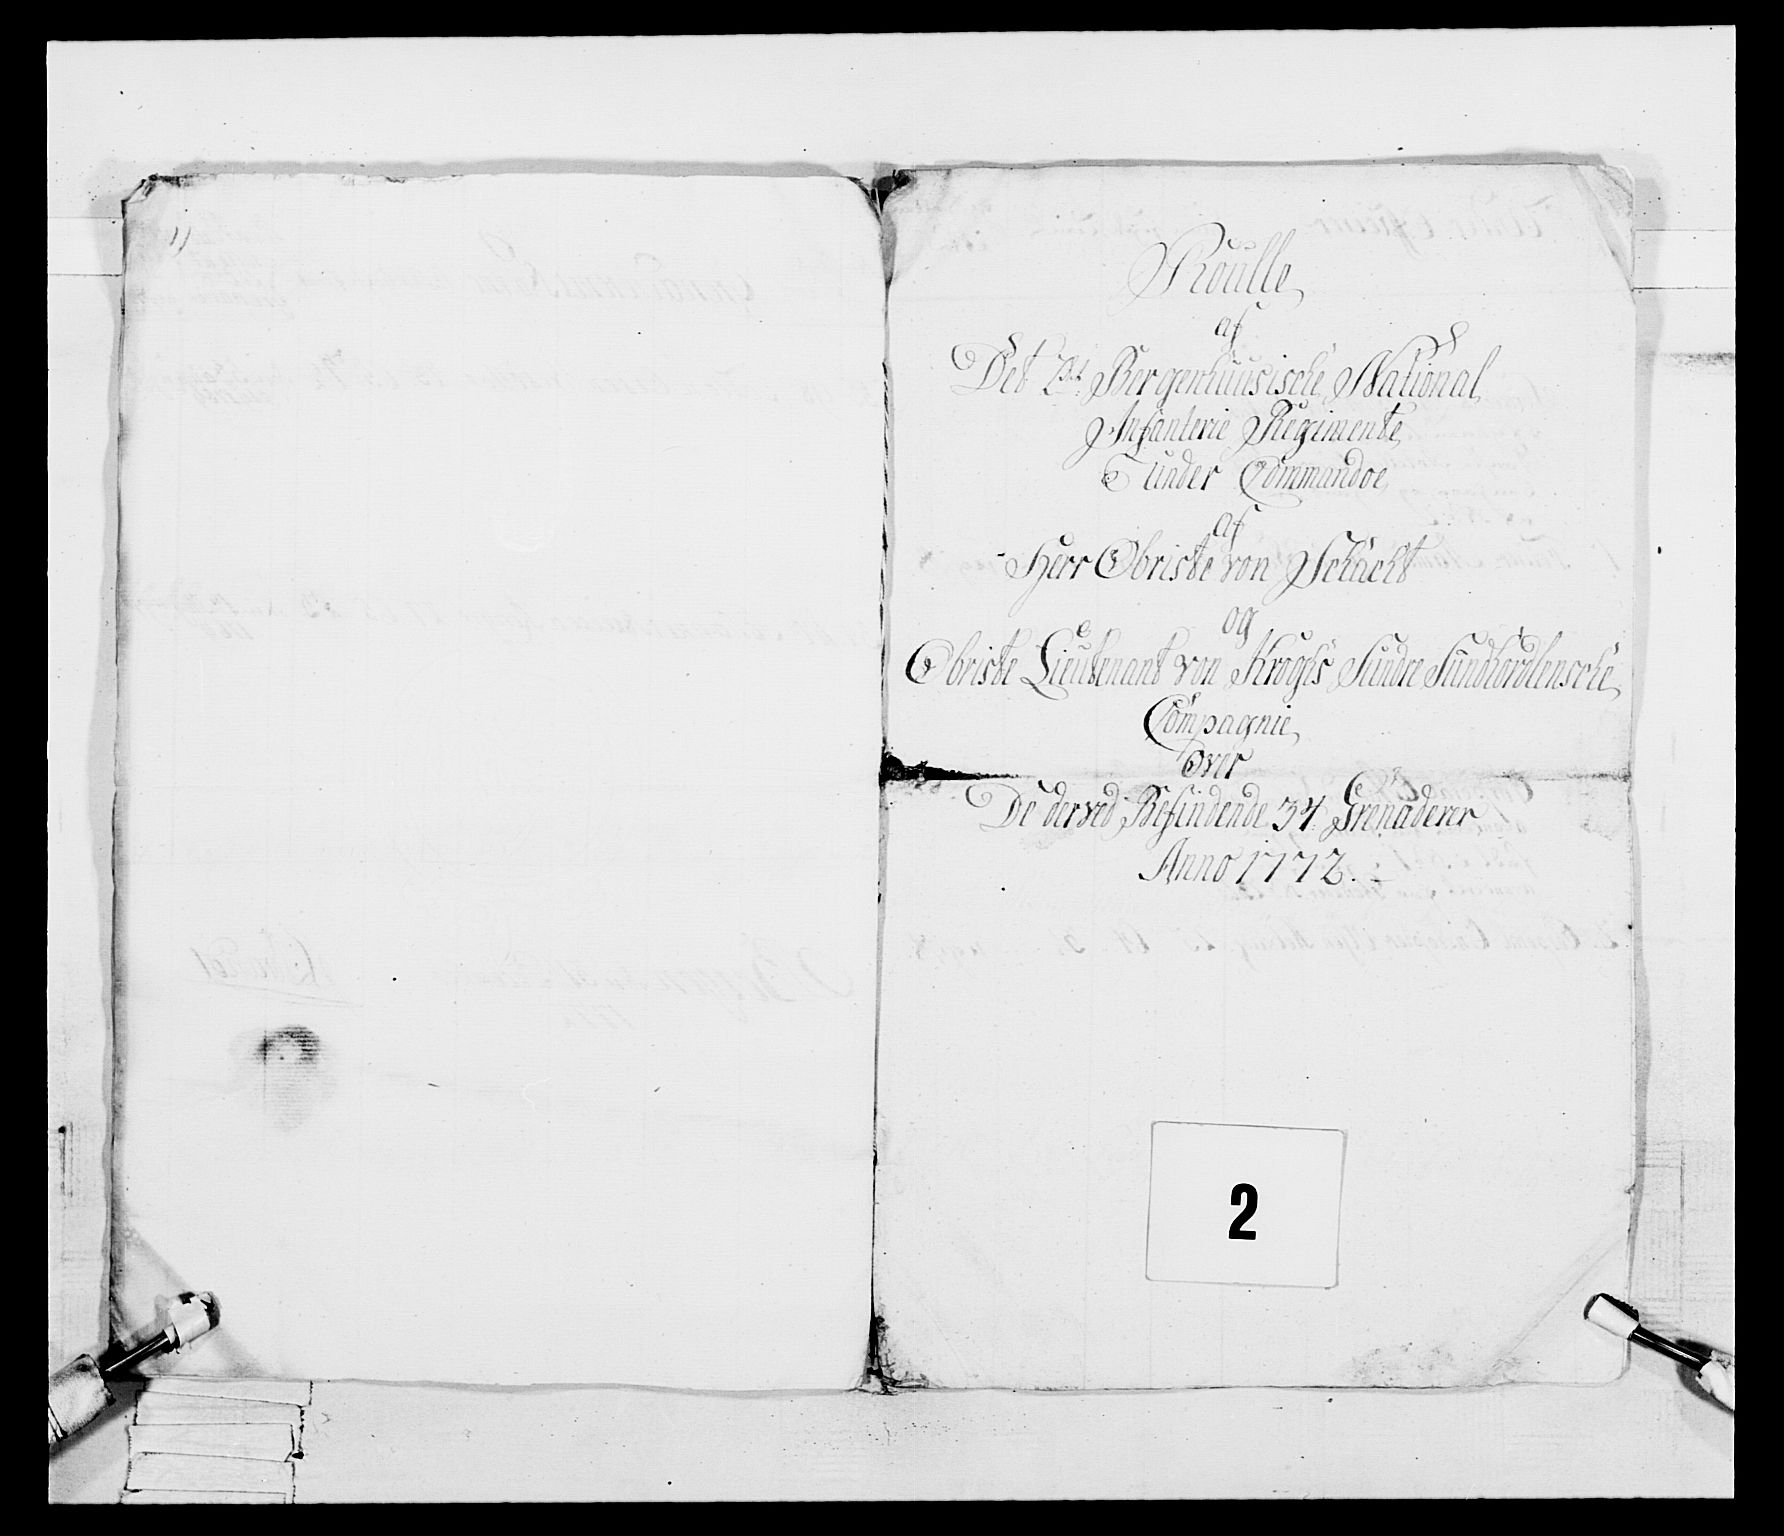 Roulle
af
Det 2det Bergenhuusische National
Infanterie Regimente
Under Commandoe
af
Herr Obriste von Schacht
og
Obriste Lieutenant von Kroghs Sundre Sundhordlensche
Compagnie
over
De derved Befindende 34 Grenaderer
Anno 1772.
2